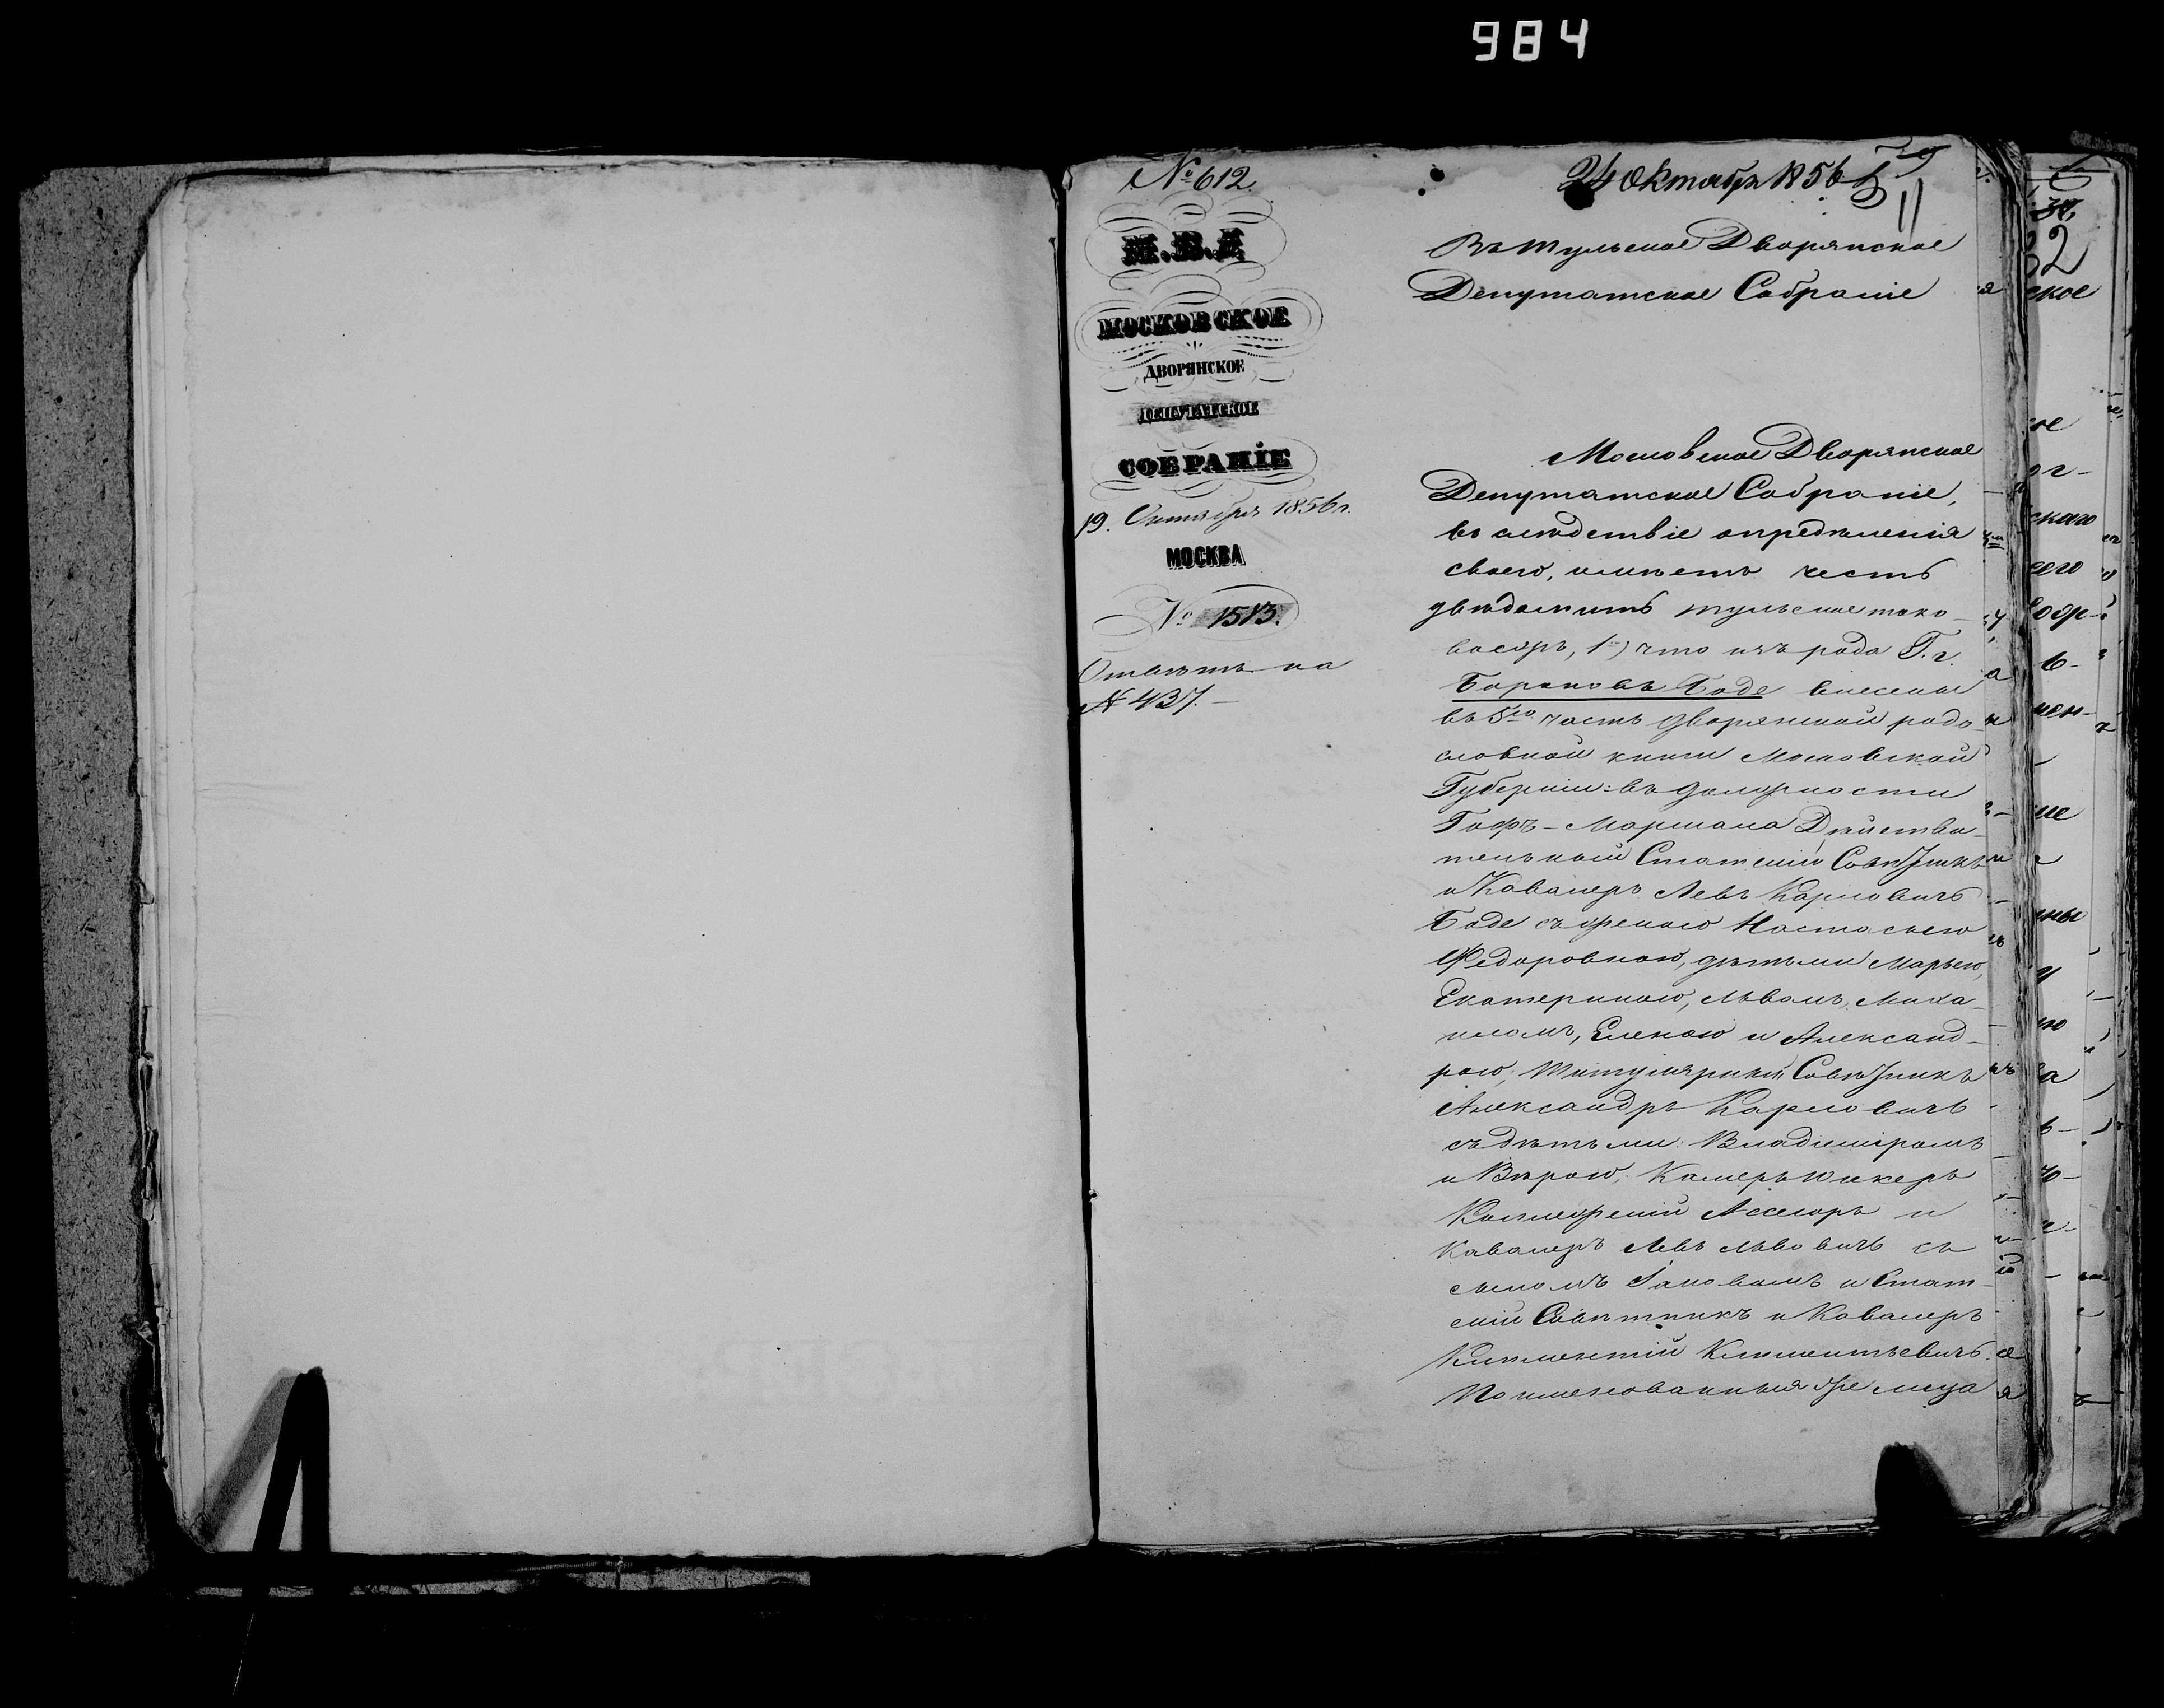 984
№ 612.
24 Октября 1856
М.В.Д.
МОСКОВСКОЕ
ДВОРЯНСКОЕ
ДЕПУТАТСКОЕ
СОБРАНІЕ
19. Октября 1856 г.
МОСКВА
№ 1513.
Отвѣтъ на
№ 437.—
Въ Тульское Дворянское
Депутатское Собраніе
Московское Дворянское
Депутатское Собраніе,
въ слѣдствіе опредѣленія
своего, имѣетъ честь
увѣдомить Тульское тако-
вое же, 1е) что изъ рода Г.г.
Бароновъ Боде внесены
въ 5ую часть дворянской родо-
словной книги Московской
Губерніи: въ должности
Гофъ-Маршала Дѣйстви-
тельный Статскій Совѣтникъ
и Кавалеръ Левъ Карловичъ
Боде съ женою Настасьею
Федоровною, дѣтьми Марьею,
Екатериною, Львомъ, Миха-
иломъ, Еленою и Александ-
рою, Титулярный Совѣтникъ
Александръ Карловичъ
съ дѣтьми: Владиміромъ
и Вѣрою, Камеръ Юнкеръ
Коллежскій Ассесоръ и
Кавалеръ Левъ Львовичъ съ
сыномъ Іаковомъ и Стат-
скій Совѣтникъ и Кавалеръ
Климентій Климентьевичъ.
Поименованныя же лица
32
ское